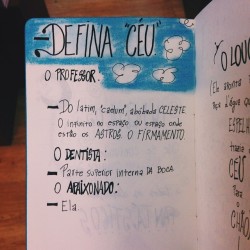 DEFINA "CÉU"
O PROFESSOR:
— Do latim, "caelum", abóbada CELESTE
O infinito no espaço ou espaço onde
estão os ASTROS; O FIRMAMENTO
O DENTISTA:
— Parte superior interna DA BOCA
O APAIXONADO:
— Ela...
Y O LOUC
Ele
ESPEL
CÉU
Para
O
CHÃO